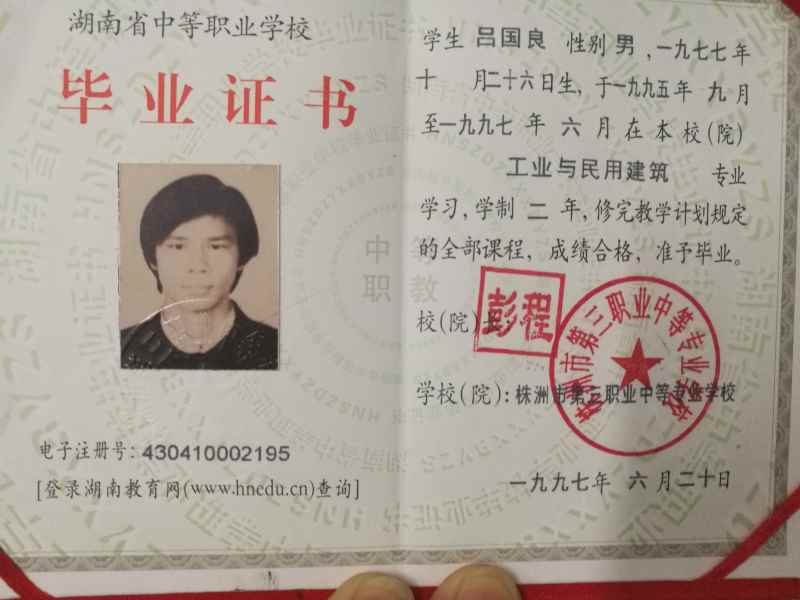 湖南省中等职业学校
毕业证书
电子注册号：430410002195
[登录湖南教育网(www.hnedu.cn)查询]
学生 吕国良 性别 男，一九七七年
十 月二十六日生，于一九九五年 九月
至一九九七 年 六 月 在 本 校(院)
工业与民用建筑 专业
学习，学制 二 年，修完教学计划规定
的全部课程，成绩合格，准予毕业。
校(院)长：
彭程
学校(院)：株洲市第三职业中等专业学校
株洲市第三职业中等专业学校
一九九七年 六 月二十日
中等
职教